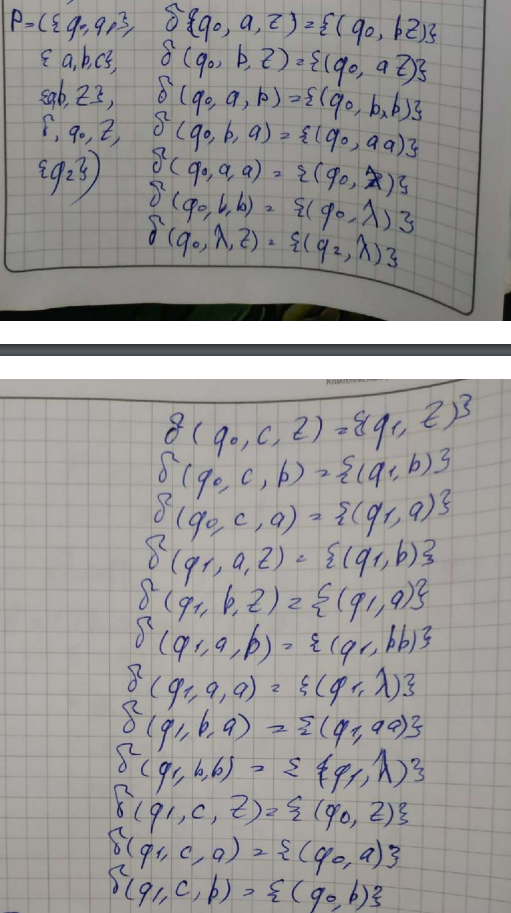 P=({q₀,q₁}, δ{q₀, a, z)={(q₀, bZ)}
{a,b,c}, δ(q₀, b, Z)={(q₀, aZ)}
{ab, Z}, δ(q₀, a, b)={(q₀, b,b)}
δ, q₀, Z, δ(q₀, b, a)={(q₀, aa)}
{q₂}) δ(q₀, a, a) = {(q₀, λ)}
δ(q₀, b, b) = {(q₀, λ)}
δ(q₀, λ, Z) = {(q₂, λ)}
δ(q₀, c, Z) ={(q₁, Z)}
δ(q₀, c, b) ={(q₁, b)}
δ(q₀, c, a) = {(q₁, a)}
δ(q₁, a, Z) = {(q₁, b)}
δ(q₁, b, Z) = {(q₁, a)}
δ(q₁, a, b) = {(q₁, bb)}
δ(q₁, a, a) = {(q₁, λ)}
δ(q₁, b, a) = {(q₁, aa)}
δ(q₁, b, b) = { {q₁, λ)}
δ(q₁, c, Z)={(q₀, Z)}
δ(q₁, c, a) = {(q₀, a)}
δ(q₁, c, b) = {(q₀, b)}